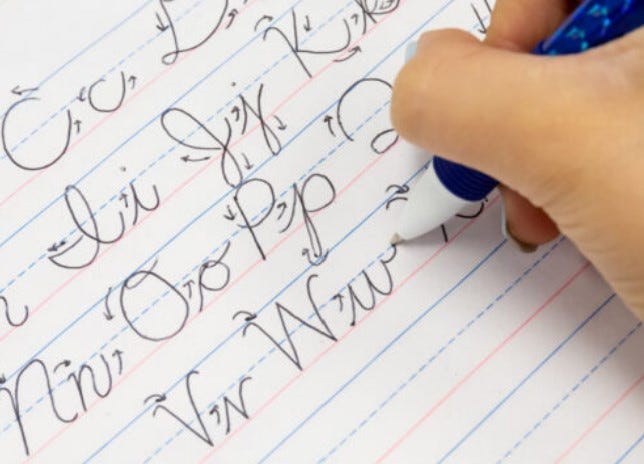 Cc D
Ii Jj Kk
Nn Oo Pp Q
Vv Ww